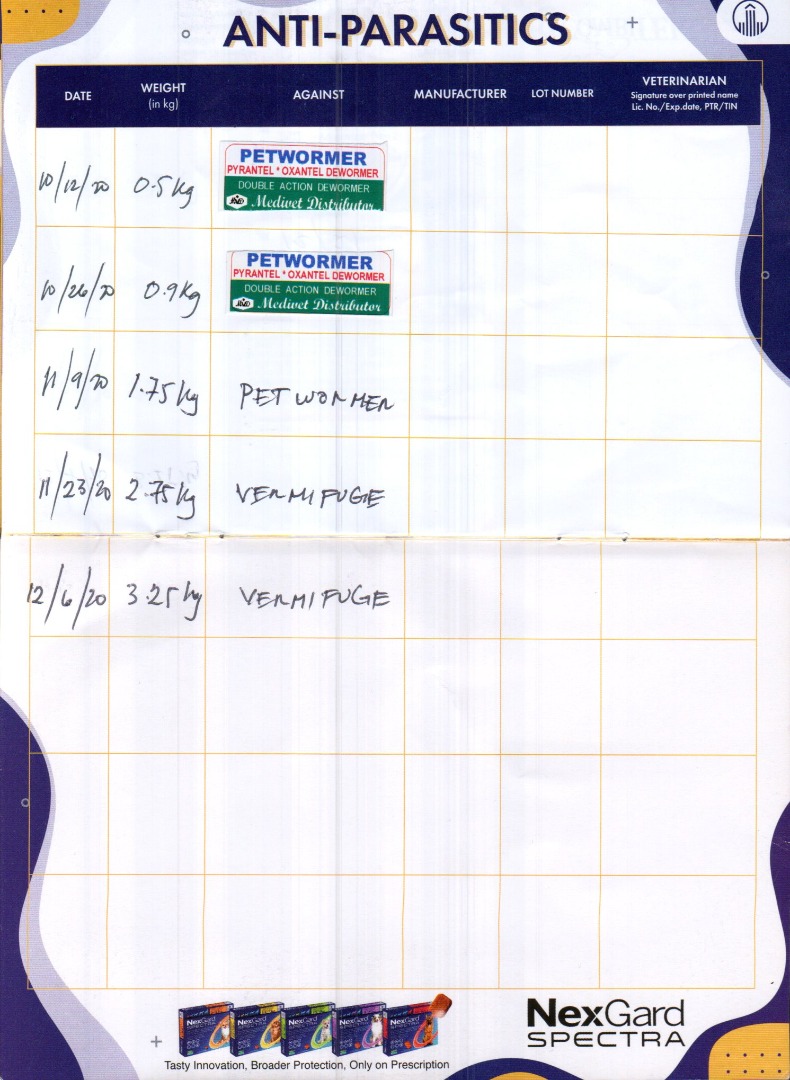 ANTI-PARASITICS
DATE
WEIGHT
(in kg)
AGAINST
MANUFACTURER
LOT NUMBER
VETERINARIAN
Signature over printed name
Lic. No./Exp.date, PTR/TIN
10/12/20 0.5kg
PETWORMER
PYRANTEL * OXANTEL DEWORMER
DOUBLE ACTION DEWORMER
Medivet Distributor
10/26/20 0.9kg
PETWORMER
PYRANTEL * OXANTEL DEWORMER
DOUBLE ACTION DEWORMER
Medivet Distributor
11/9/20 1.75kg PETWORMER
11/23/20 2.75kg VERMIFUGE
12/6/20 3.25kg VERMIFUGE
NexGard NexGard NexGard NexGard NexGard
Tasty Innovation, Broader Protection, Only on Prescription
NexGard
SPECTRA